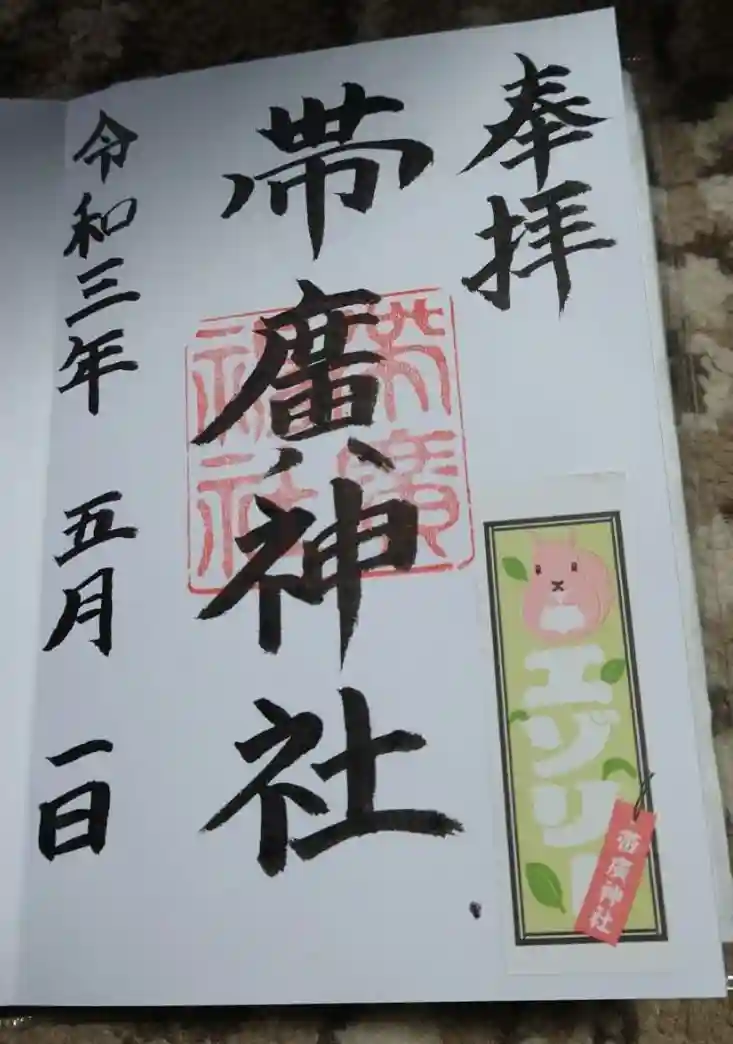 奉拝
帯廣神社
帯廣神社
令和三年 五月 一日
エゾリ
帯廣神社